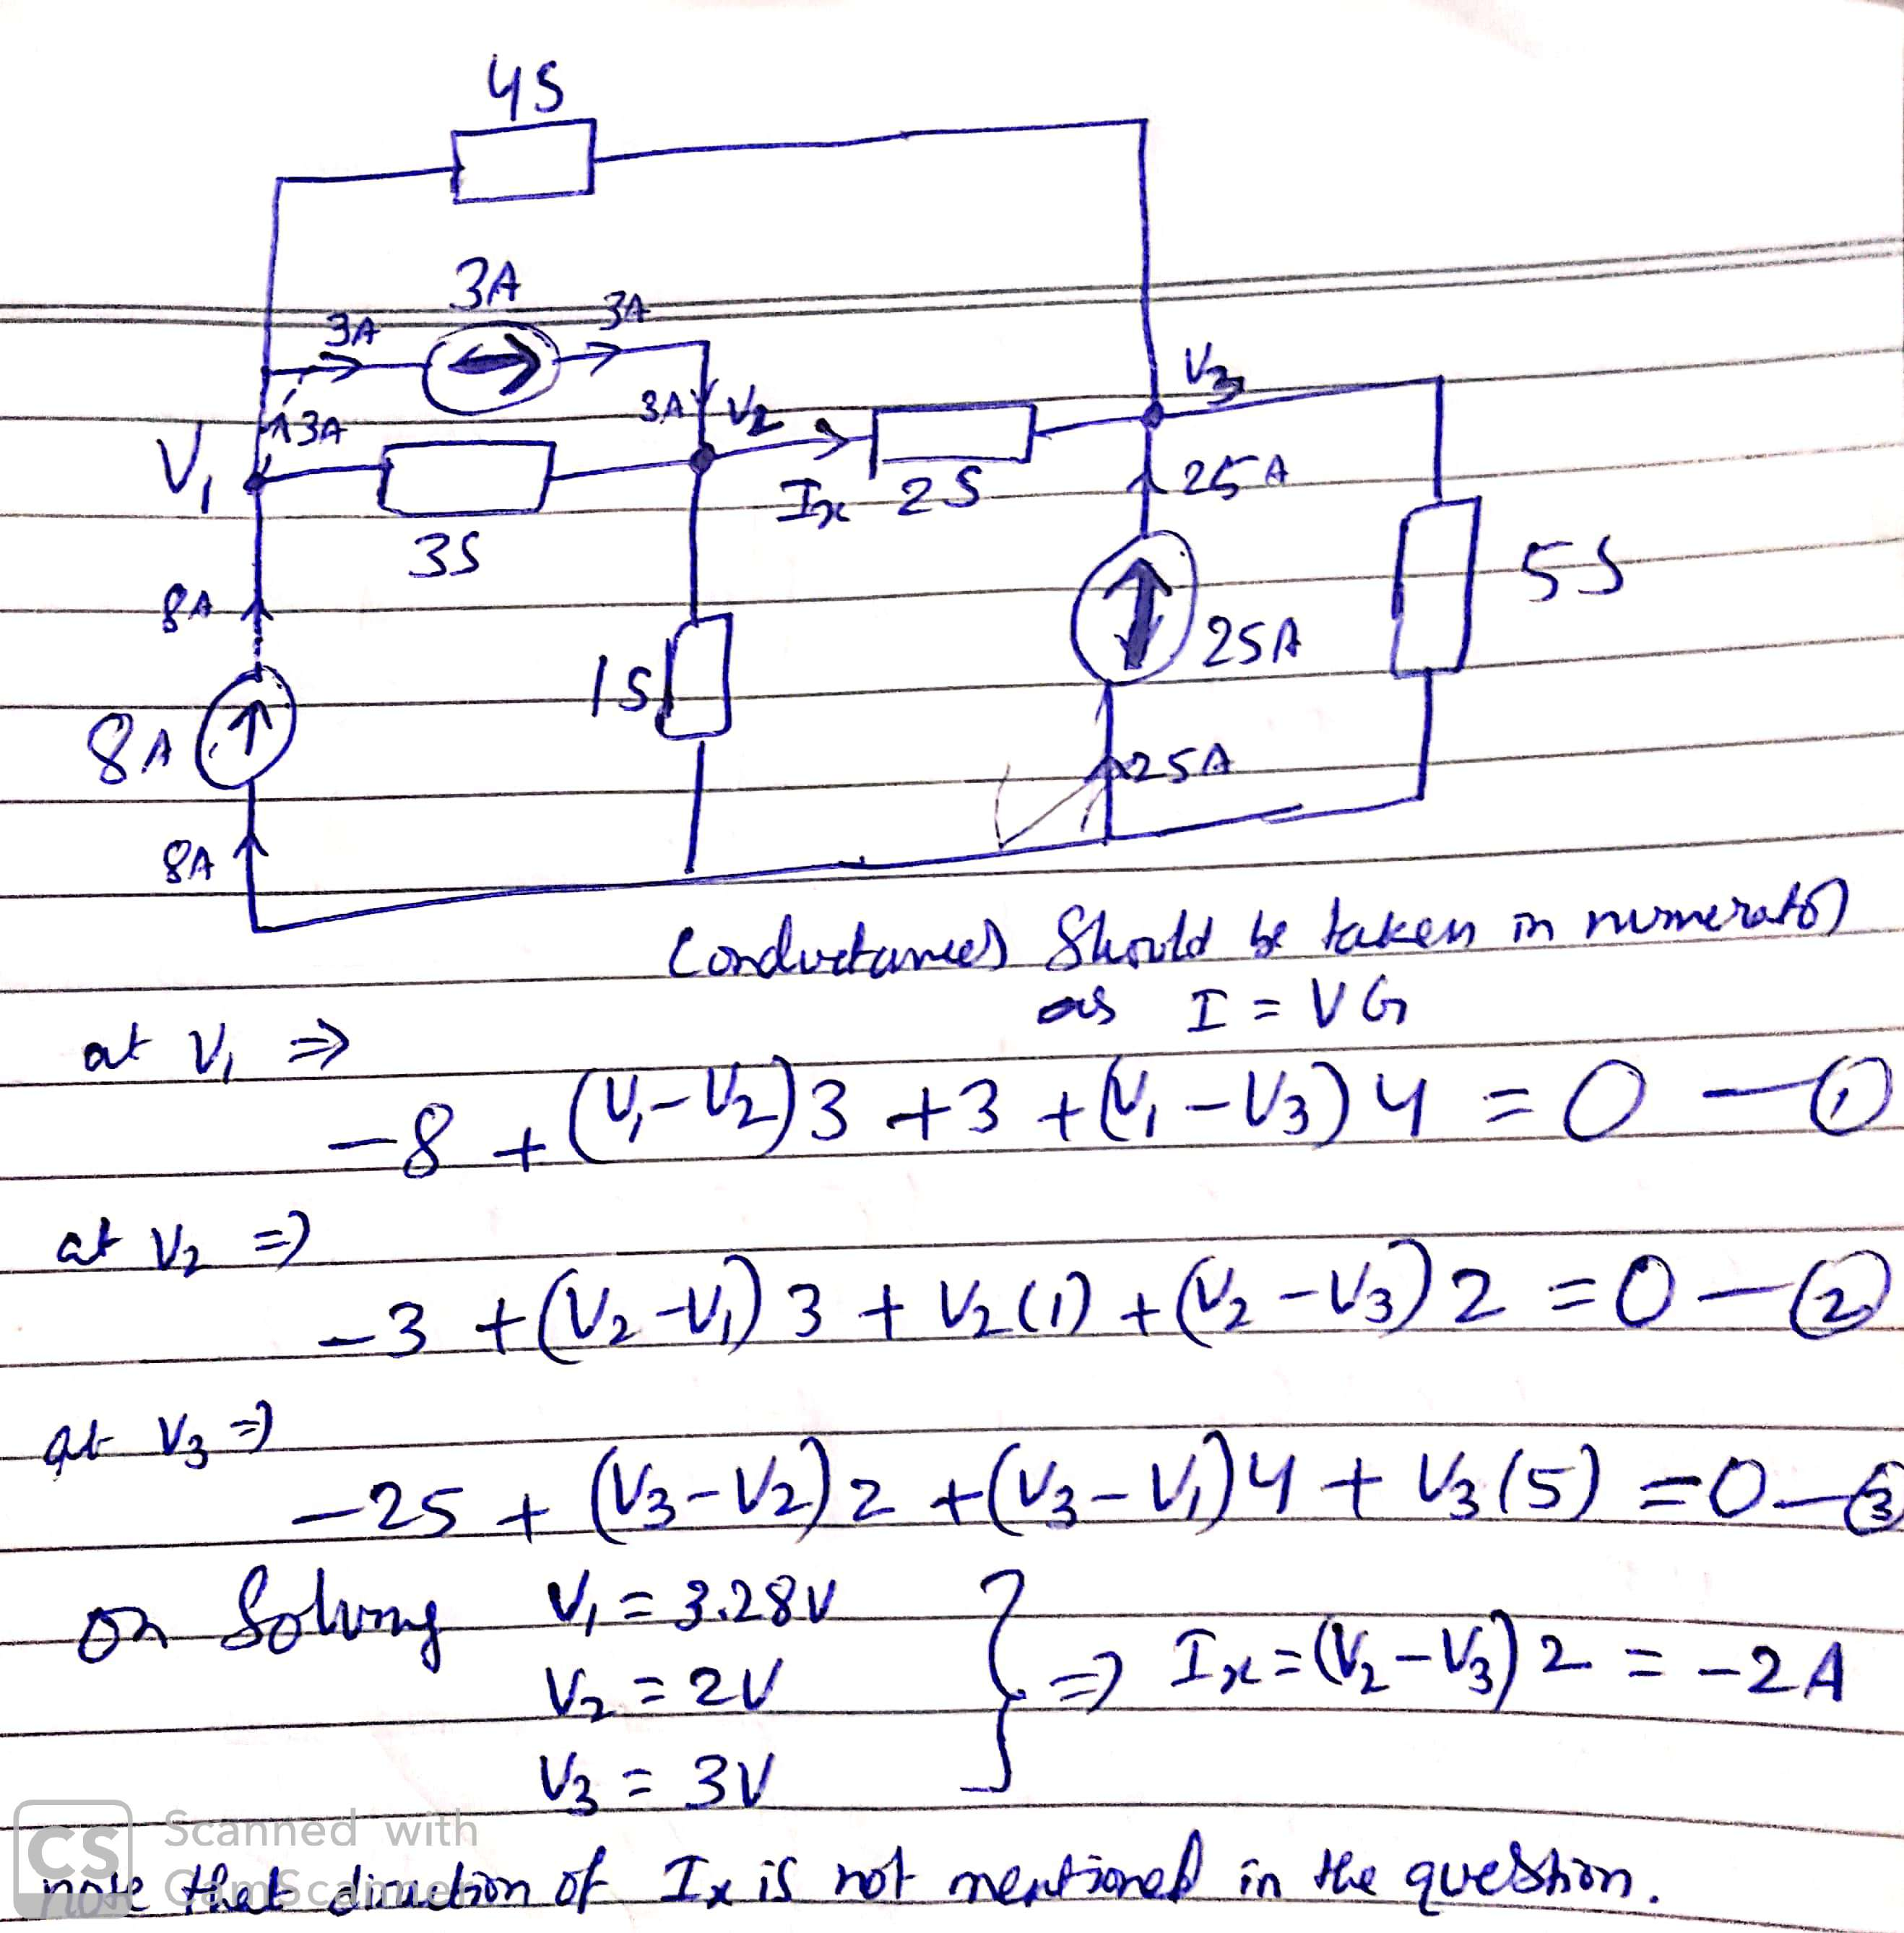 4S
3A
3A
3A
3A
3A
V2
V3
V1
3S
Ix
2S
25A
5S
8A
1S
25A
8A
25A
8A
Conductances should be taken in numerator
as I = VG
at V1 ⇒
-8 + (V1-V2)3 +3 +(V1-V3)4 = 0 — ①
at V2 ⇒
-3 +(V2-V1)3 + V2(1) +(V2-V3)2 =0 — ②
at V3 ⇒
-25 + (V3-V2)2 +(V3-V1)4 + V3(5) =0 — ③
on Solving V1 = 3.28V
V2 = 2V
⇒ Ix = (V2-V3)2 = -2A
V3 = 3V
CS Scanned with
CamScanner
note that direction of Ix is not mentioned in the question.